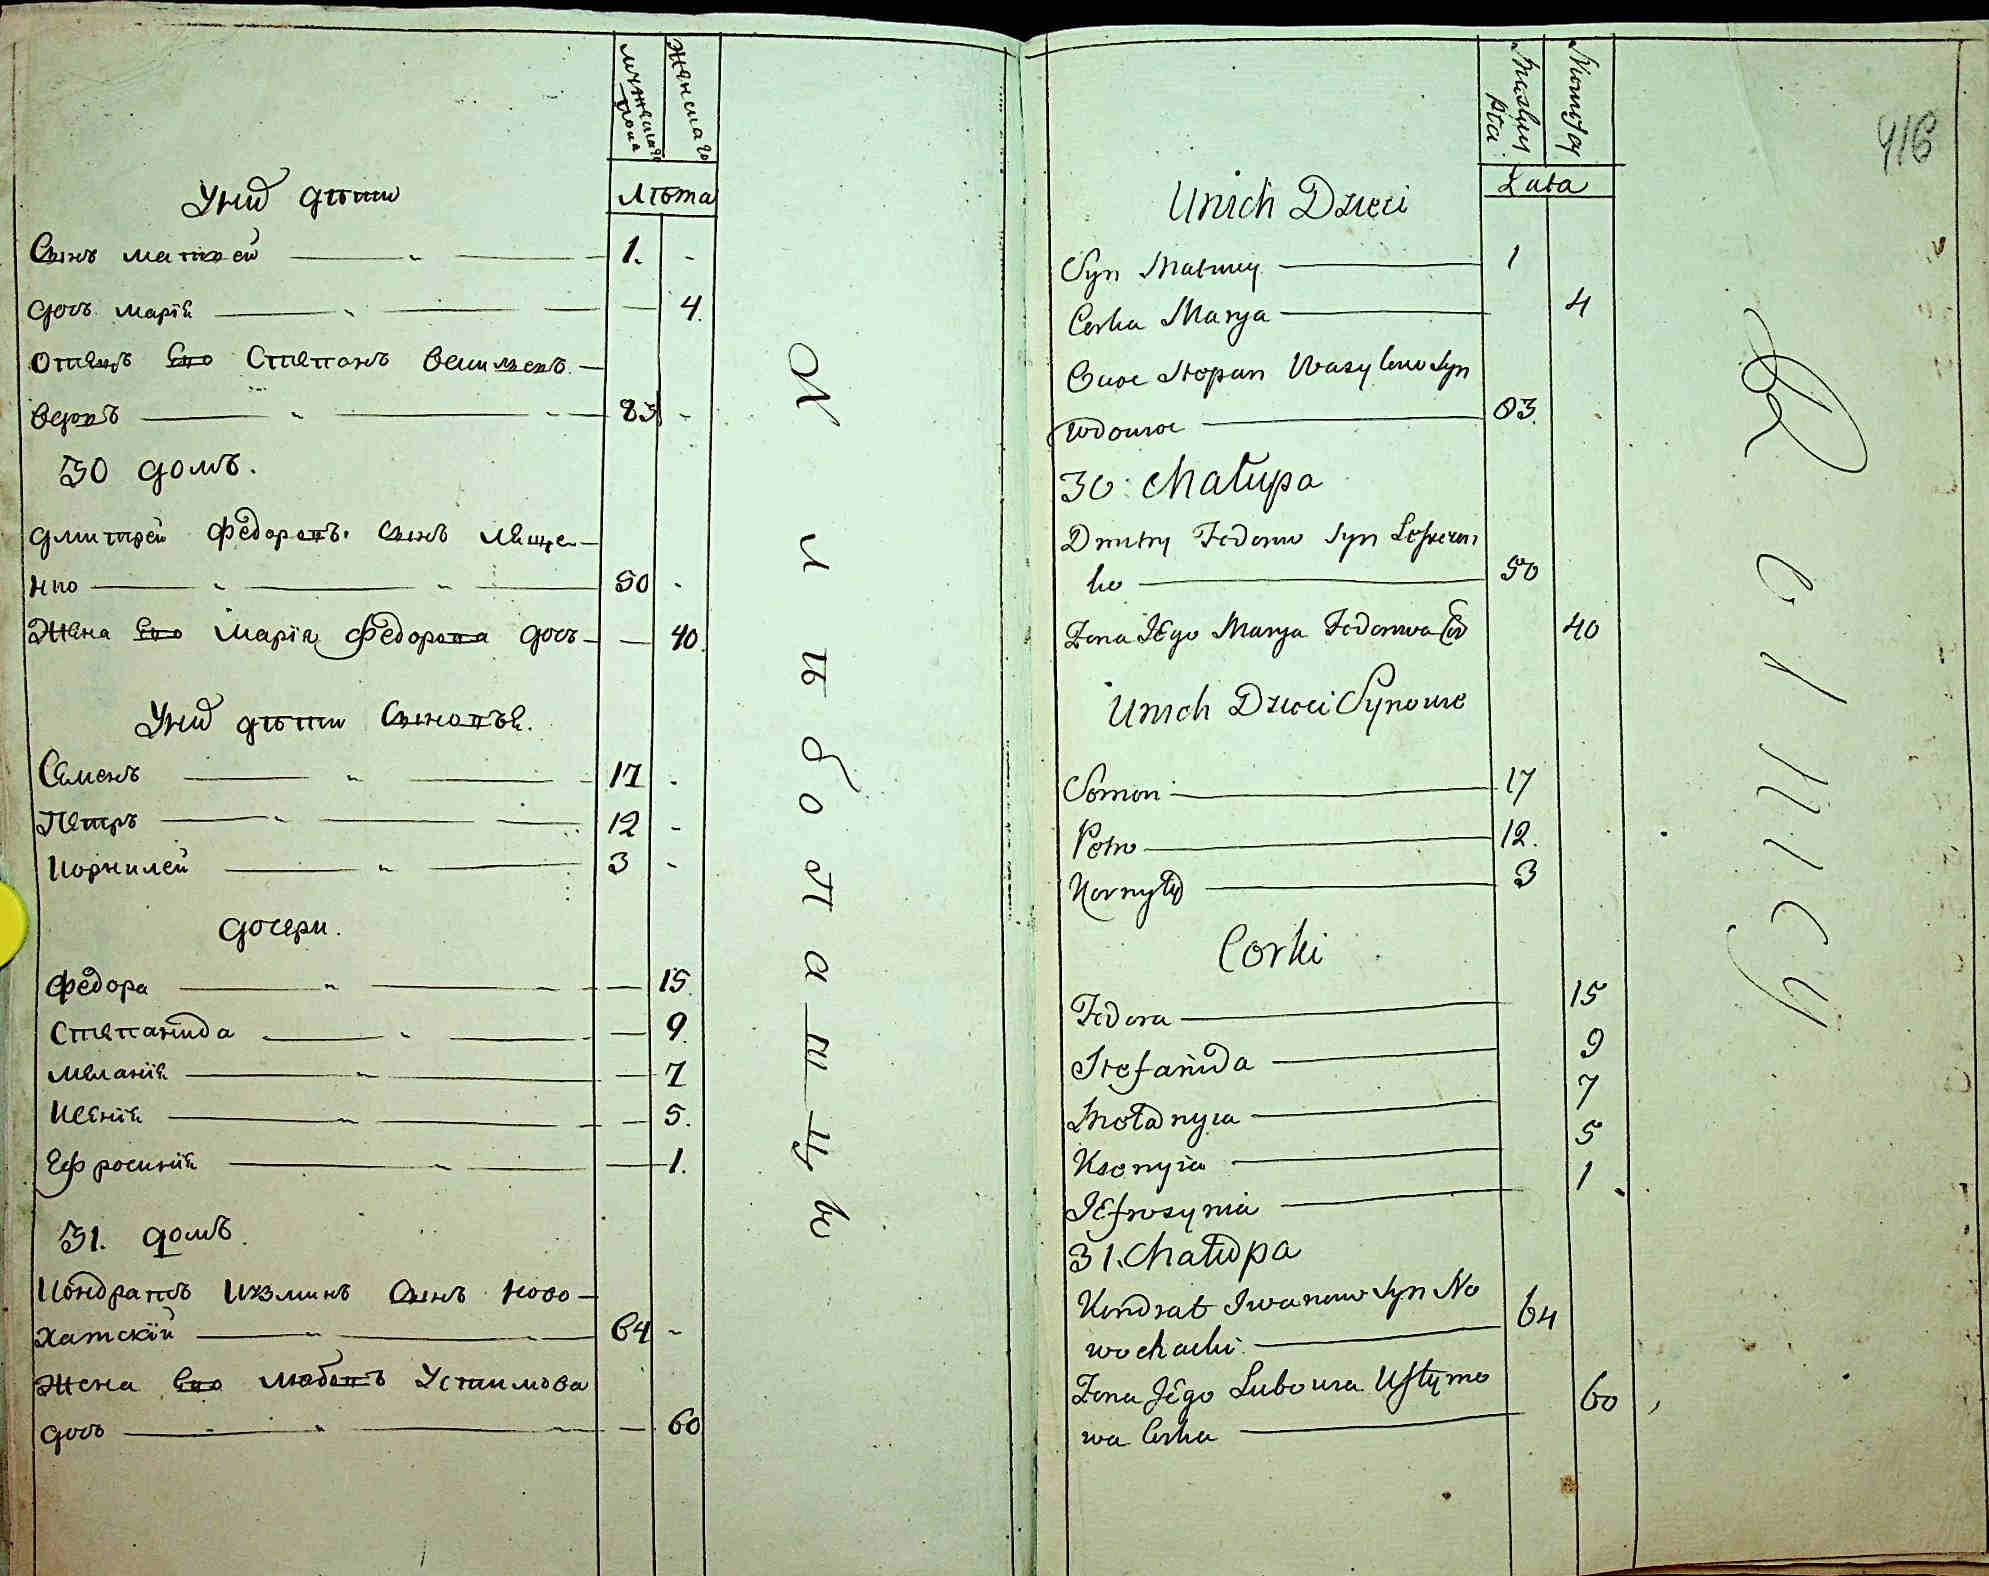 мужеска
пола
женска го
Лѣта
У них дѣти
Сынъ матвей 1. -
дочь марія 4.
отецъ Его Степанъ Василиевъ
вдовъ 83 -
30 домъ.
дмитрей Федоровъ сынъ Леще-
нко 50 -
Жена Его Марія Федорова дочь 40.
У них дѣти Сыновъя.
Семенъ 17 -
Петръ 12 -
Корнилей 3 -
дочери.
Федора 15.
Степанида 9.
меланія 7
Ксенія 5.
Ефросинія 1.
31. домъ.
Кондратъ Кузминъ Сынъ Ново-
хатскій 64 -
Жена Его любовъ Устимова
дочь 60
Хлѣбопашцы
416
Lata
Unich Dzieci
Syn Matwiey 1
Corka Marya 4
Ociec Stepan Wasylow Syn
wdowiec 83.
30: Chałupa
Dmitry Fedorow Syn Leszczen
ko 50
Zona Jego Marya Fedorowa Cor 40
Unich Dzieci Synowie
Semen 17
Petro 12.
Kornyły 3
Corki
Fedora 15
Stefanida 9
Mełanyia 7
Ksenyia 5
JEfrosynia 1
31. Chałupa
Kondrat Iwanow Syn No
wochacki 64
Zona Jego Lubowa Ustymo
wa Corka 60
Rolnicy